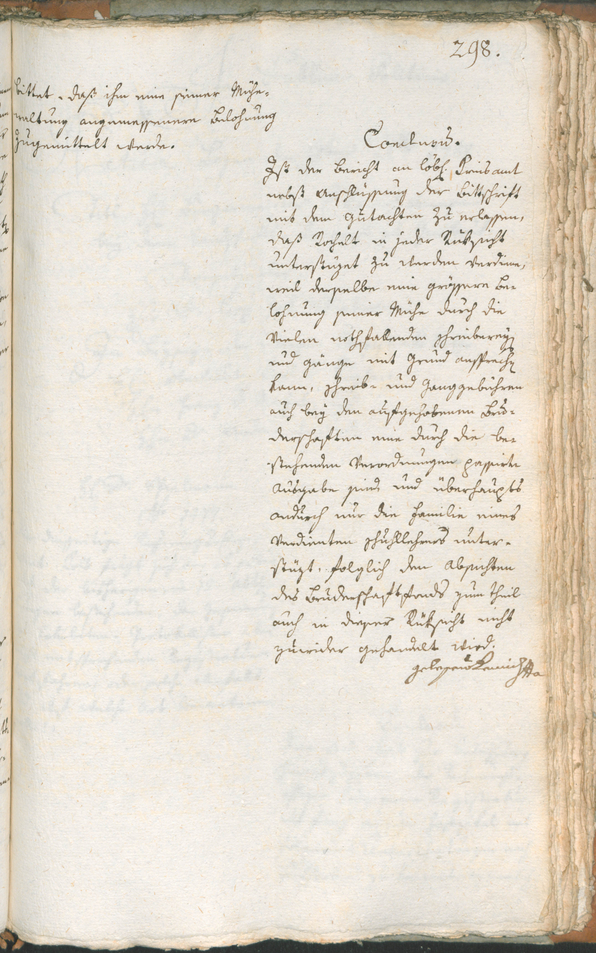 298.
bittet, daß ihm eine seiner Mühe-
waltung angemessenere Belohnung
zugemittelt werde.
Conclusum.
Ist der Bericht an löbl. Kreisamt
nebst Anschlüssung der Bittschrift
mit dem Gutachten zu erlassen,
daß Rochelt in jeder Rüksicht
unterstüzet zu werden verdiene,
weil derselbe eine grössere Be-
lohnung seiner Mühe durch die
vielen nothfallenden schreibereyen
und gänge mit Grund ansprechen
kann, schreib- und Ganggebühren
auch bey den aufgehobenen Bru-
derschaften eine durch die be-
stehenden Verordnungen passirte
Ausgabe sind und überhaupts
andurch nur die Familie eines
verdienten schullehrers unter-
stüzt, folglich den Absichten
des Bruderschaftsfonds zum theil
auch in dieser Rüksicht nicht
zuwider gehandelt wird.
gelesen